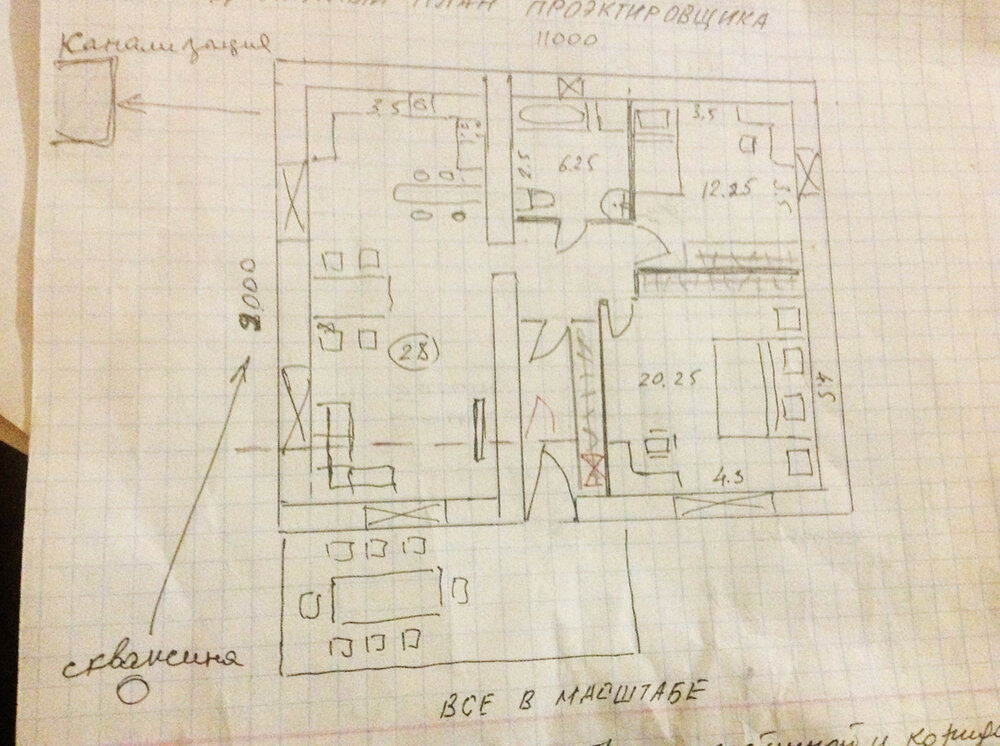 ПЛАН ПРОЭКТИРОВЩИКА
11000
Канализация
3,5
2.5
6.25
3,5
12.25
3.5
9000
28
20.25
4.5
4.5
скважина
ВСЕ В МАСШТАБЕ
и